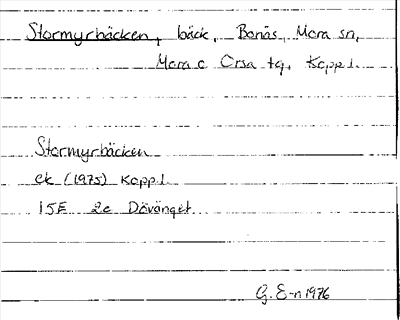 Stormyrbäcken, bäck, Bonäs, Mora sn,
Mora o Orsa tg, Kopp.l.
Stormyrbäcken
ek (1975) Kopp.l
15E 2c Dövänget
G. E-n 1976